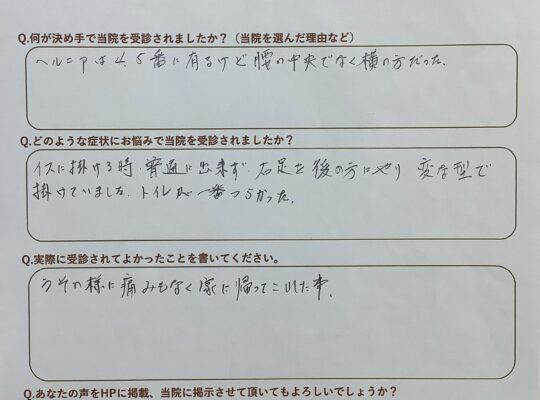 Q.何が決め手で当院を受診されましたか？（当院を選んだ理由など）
ヘルニアは4.5番に有るけど腰の中央でなく横の方だった.
Q.どのような症状にお悩みで当院を受診されましたか？
イスに掛ける時.普通に出来ず.右足を後の方にやり 変な型で
掛けていました.トイレが一番つらかった.
Q.実際に受診されてよかったことを書いてください。
うその様に痛みもなく家に帰ってこれた事.
Q.あなたの声をHPに掲載、当院に掲示させて頂いてもよろしいでしょうか？